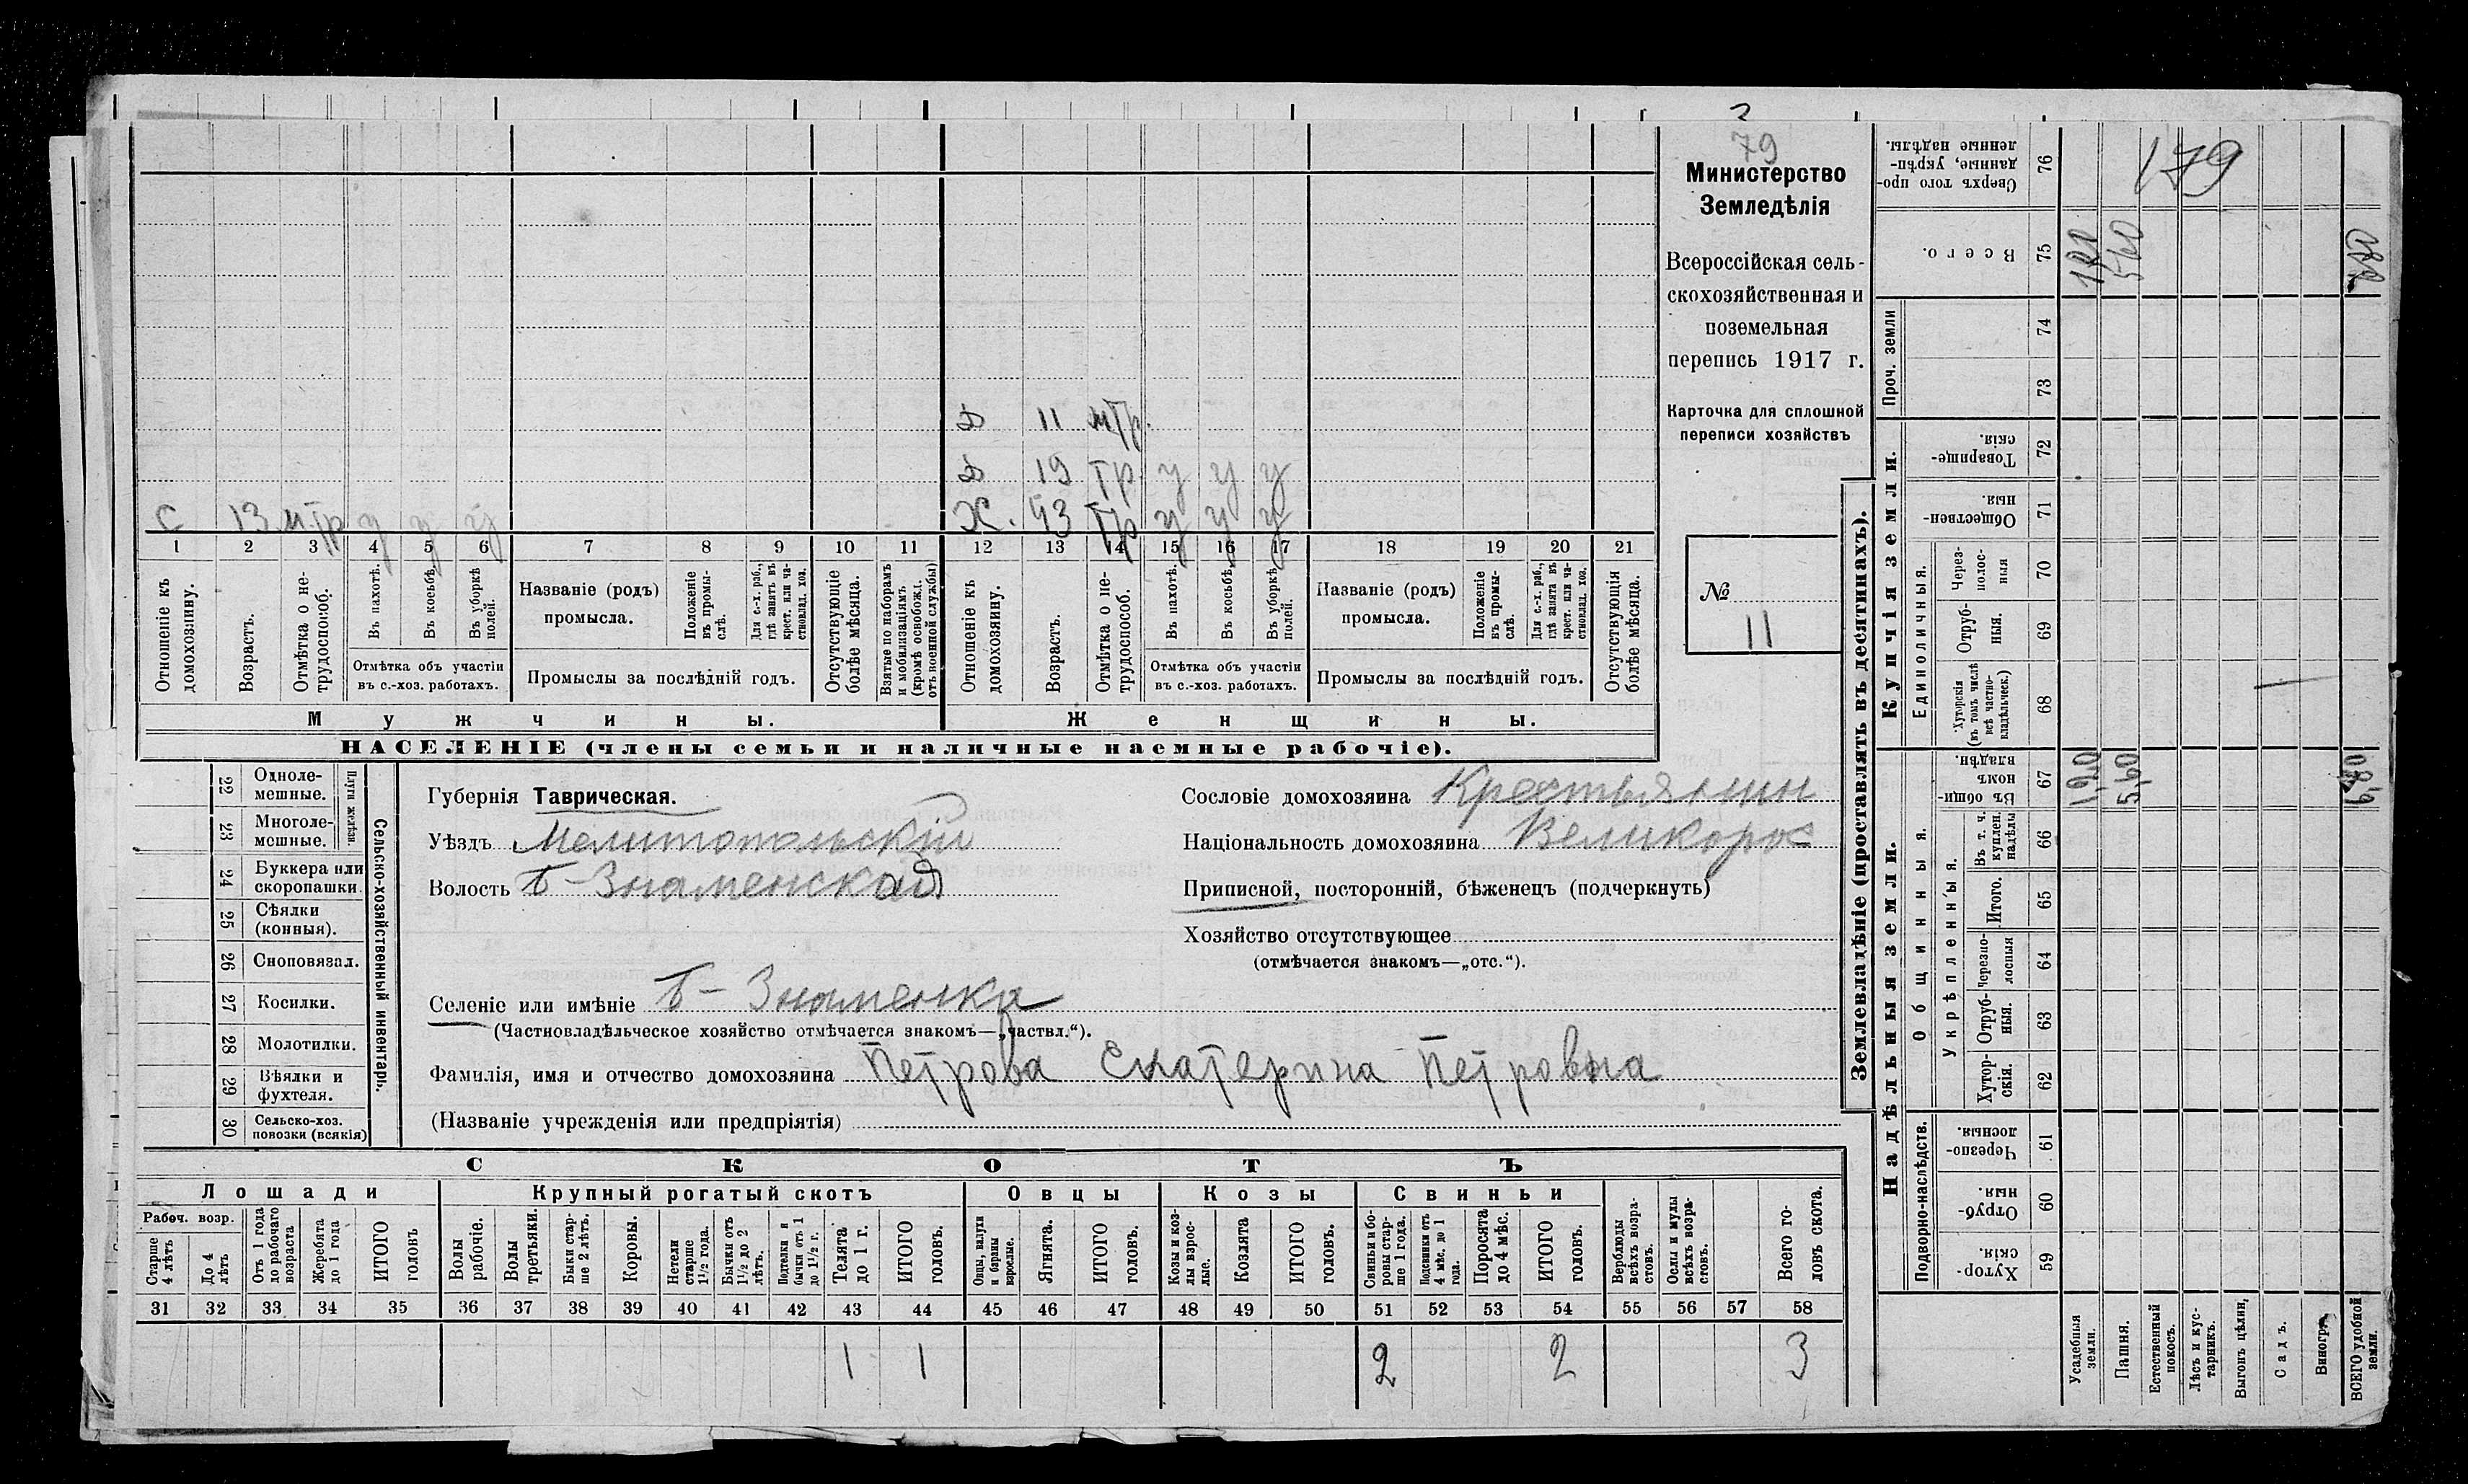 79
Министерство
Земледѣлія
Всероссійская сель-
скохозяйственная и
поземельная
перепись 1917 г.
Карточка для сплошной
переписи хозяйствъ
№
11
179
Д 11 мтр.
Д 19 тр. у у у
С 13 м тр д д у
Ж. 43 тр у у у
1 2 3 4 5 6 7 8 9 10 11 12 13 14 15 16 17 18 19 20 21
Отношеніе къ домохозяину.
Возрастъ.
Отмѣтка о не-трудоспособ.
Въ пахотѣ.
Въ косьбѣ.
Въ уборкѣ полей.
Отмѣтка объ участіи въ с.-хоз. работахъ.
Названіе (родъ) промысла.
Положеніе въ промы-слѣ.
Для с.-х. раб., гдѣ занятъ въ крест. или ча-стновлад. хоз.
Промыслы за послѣдній годъ.
Отсутствующіе болѣе мѣсяца.
Взятые по наборамъ и мобилизаціямъ (кромѣ освобожд. отъ военной службы)
Отношеніе къ домохозяину.
Возрастъ.
Отмѣтка о не-трудоспособ.
Въ пахотѣ.
Въ косьбѣ.
Въ уборкѣ полей.
Отмѣтка объ участіи въ с.-хоз. работахъ.
Названіе (родъ) промысла.
Положеніе въ промы-слѣ.
Для с.-х. раб., гдѣ занята въ крест. или ча-стновлад. хоз.
Промыслы за послѣдній годъ.
Отсутствующія болѣе мѣсяца.
Мужчины.
Женщины.
НАСЕЛЕНІЕ (члены семьи и наличные наемные рабочіе).
22 Одноле-мешные.
23 Многоле-мешные.
Плуги желѣзн.
24 Буккера или скоропашки.
25 Сѣялки (конныя).
26 Сноповязал.
27 Косилки.
28 Молотилки.
29 Вѣялки и фухтеля.
30 Сельско-хоз. повозки (всякія)
Сельско-хозяйственный инвентарь.
Губернія Таврическая.
Уѣздъ Мелитопольскій
Волость Б-Знаменская
Селеніе или имѣніе Б-Знаменка
(Частновладѣльческое хозяйство отмѣчается знакомъ—„частвл.“).
Фамилія, имя и отчество домохозяина Петрова Екатерина Петровна
(Названіе учрежденія или предпріятія)
Сословіе домохозяина Крестьянин
Національность домохозяина Великорос
Приписной, посторонній, бѣженецъ (подчеркнуть)
Хозяйство отсутствующее
(отмѣчается знакомъ—„отс.“).
СКОТЪ
Лошади
Крупный рогатый скотъ
Овцы
Козы
Свиньи
Рабоч. возр.
Старше 4 лѣтъ
До 4 лѣтъ
Отъ 1 года до рабочаго возраста
Жеребята до 1 года
ИТОГО головъ
Волы рабочіе.
Волы третьяки.
Быки стар-ше 2 лѣтъ.
Коровы.
Нетели старше 1½ года.
Бычки отъ 1½ до 2 лѣтъ.
Подтелки и бычки отъ 1 до 1½ г.
Телята до 1 г.
ИТОГО головъ.
Овцы, валухи и бараны взрослые.
Ягнята.
ИТОГО головъ.
Козы и коз-лы взрос-лые.
Козлята
ИТОГО головъ.
Свиньи и бо-ровы стар-ше 1 года.
Подсвинки отъ 4 мѣс. до 1 года.
Поросята до 4 мѣс.
ИТОГО головъ.
Верблюды всѣхъ возра-стовъ.
Ослы и мулы всѣхъ возра-стовъ.
Всего го-ловъ скота.
31 32 33 34 35 36 37 38 39 40 41 42 43 44 45 46 47 48 49 50 51 52 53 54 55 56 57 58
1 1 2 2 3
Землевладѣніе (проставлять въ десятинахъ).
Купчія земли.
Надѣльныя земли.
76 Сверхъ того про-данные, укрѣп-ленные надѣлы.
75 Всего. 120 560 680
Проч. земли
74
73
72 Товарище-скія.
71 Обществен-ныя.
Единоличныя.
70 Через-полос-ныя
69 Отруб-ныя.
68 Хуторскія (въ томъ числѣ всѣ частно-владѣльческ.)
Общинныя.
67 Въ общи-номъ владѣн. 1,20 5,60 6,80
Укрѣпленныя.
66 Въ т. ч. куплен. надѣлы
65 Итого.
64 Черезпо-лосныя
63 Отруб-ныя.
62 Хутор-скія.
Подворно-наслѣдств.
61 Черезпо-лосныя.
60 Отруб-ныя.
59 Хутор-скія.
Усадебныя земли.
Пашня.
Естественный покосъ.
Лѣсъ и кус-тарникъ.
Выгонъ цѣлин,
Садъ.
ВСЕГО удобной земли.